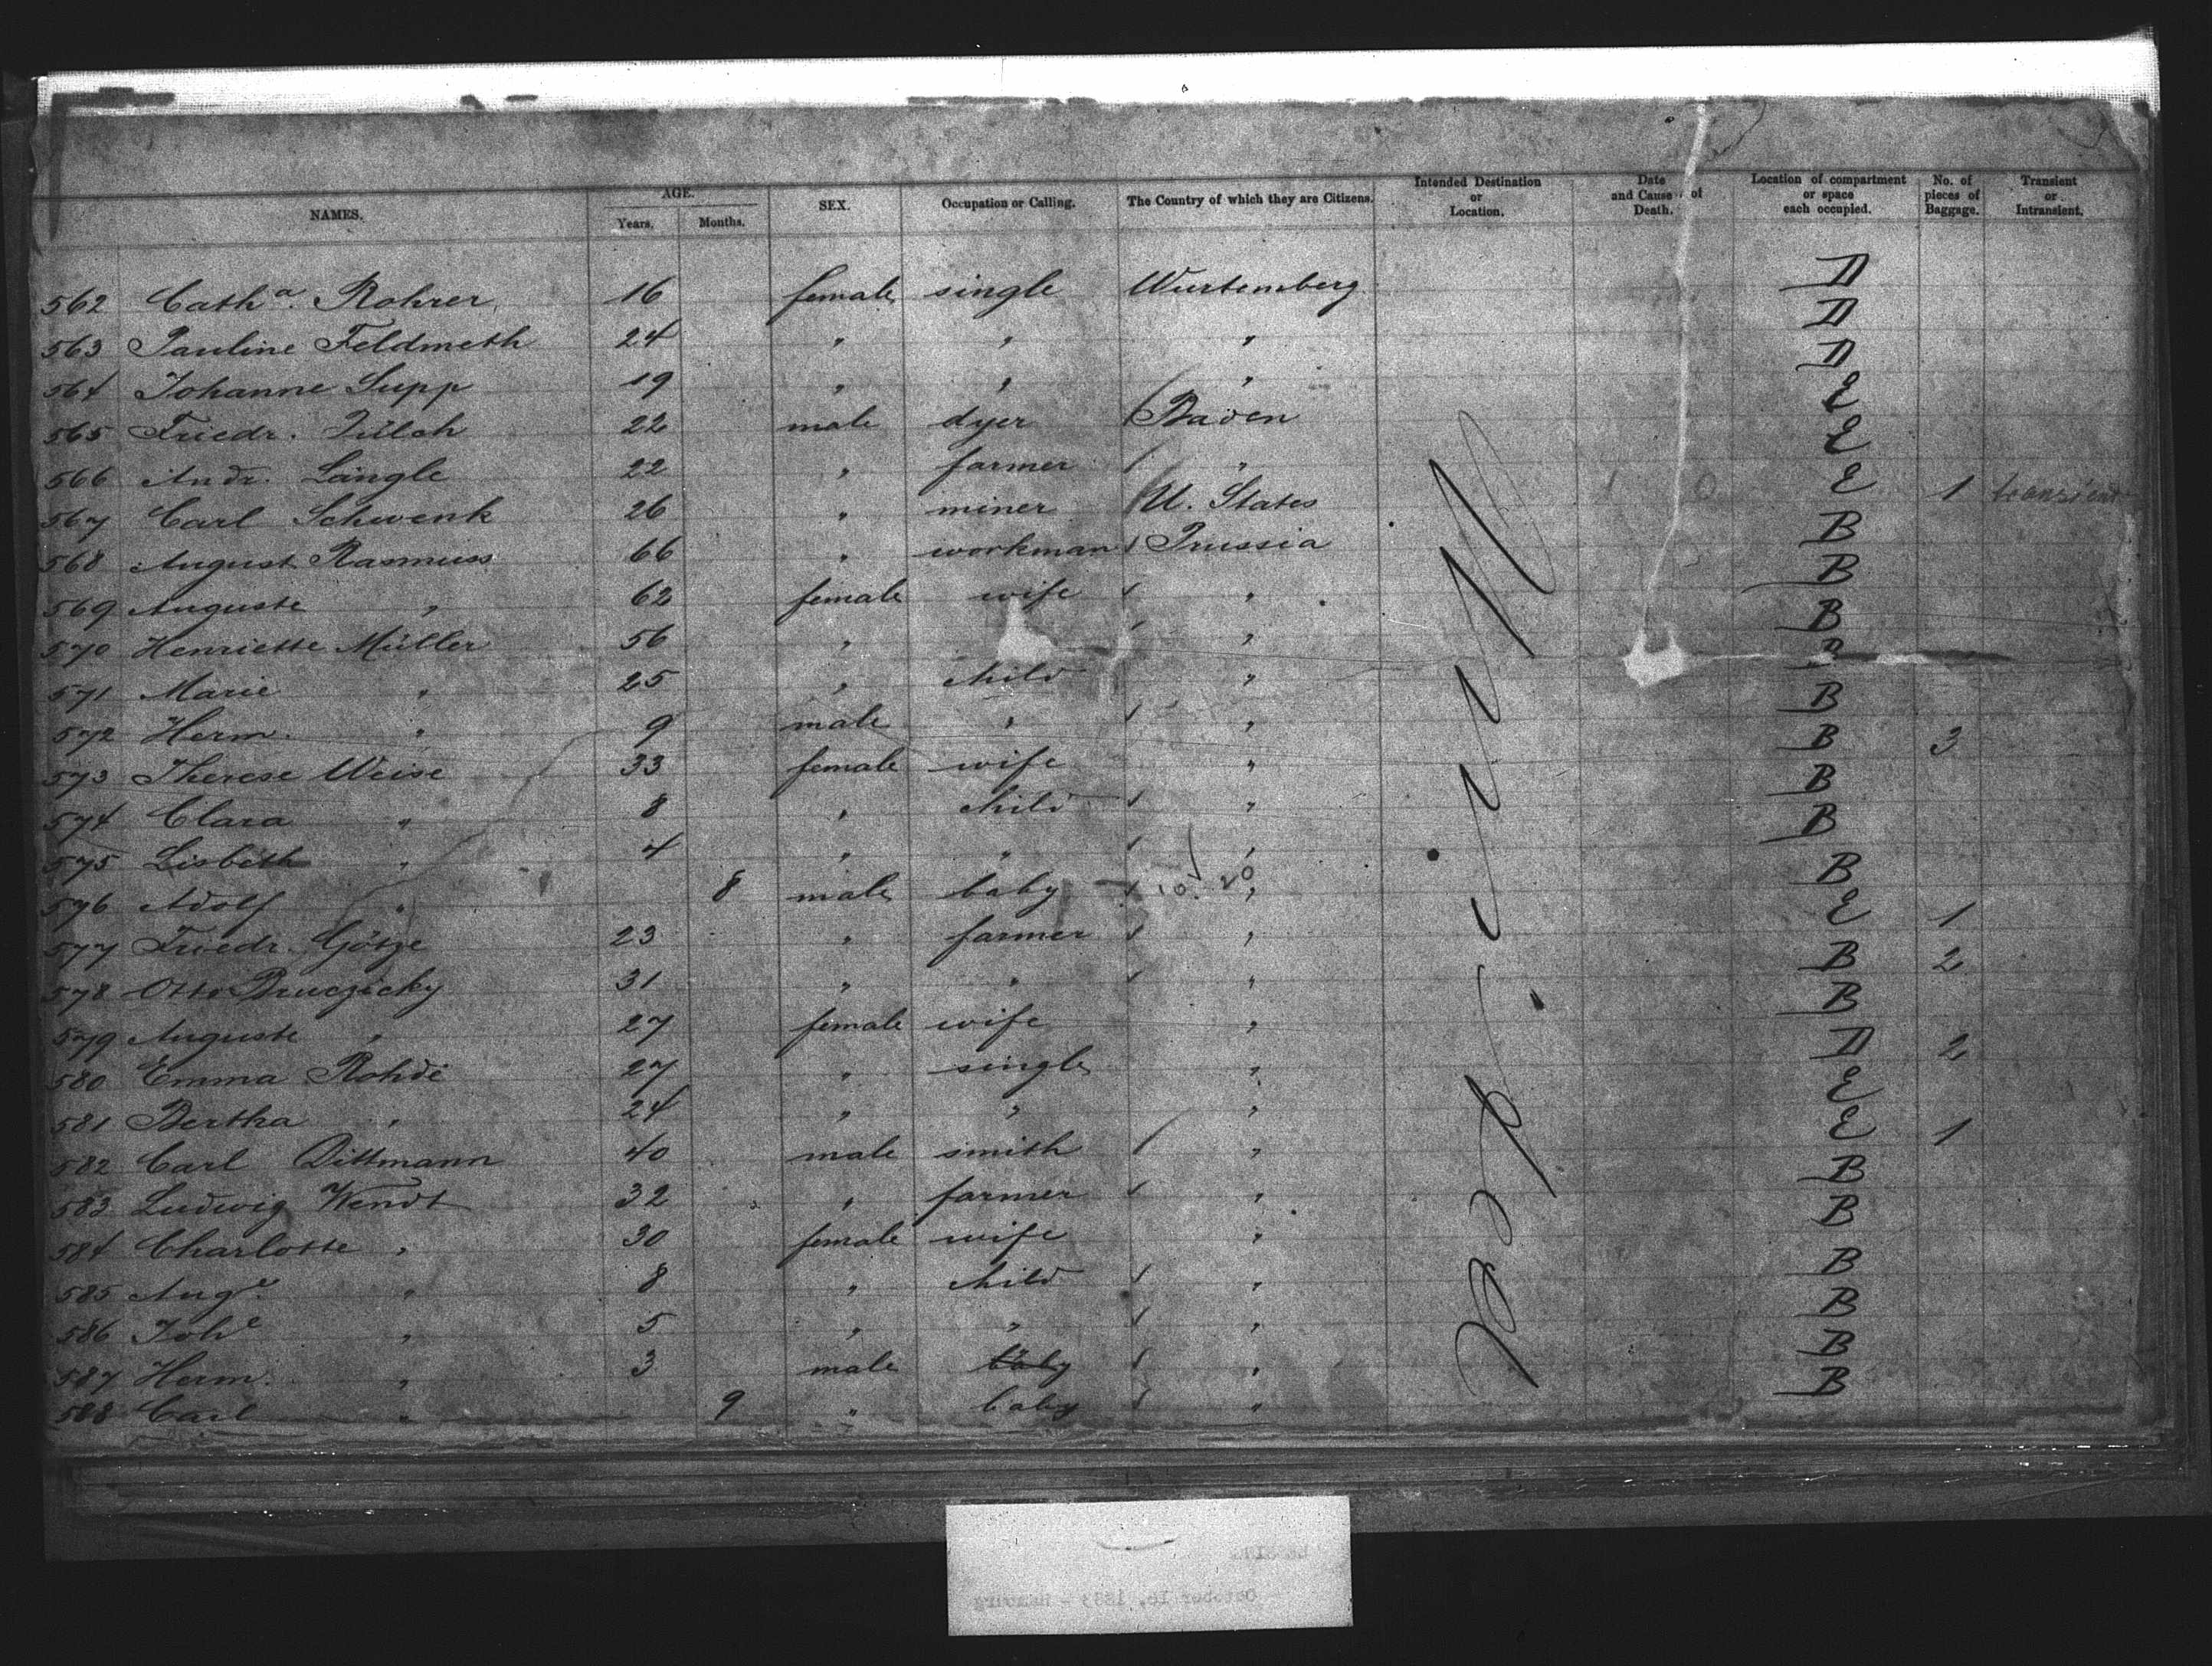 NAMES. AGE. Years. Months. SEX. Occupation or Calling. The Country of which they are Citizens. Intended Destination or Location. Date and Cause of Death. Location of compartment or space each occupied. No. of pieces of Baggage. Transient or Intransient.
562 Cath.a Rohrer 16 female single Wurtemberg D
563 Pauline Feldmeth 24 " " " D
564 Johanne Supp 19 " " " D
565 Friedr. 22 male dyer Baden E
566 Andr. Längle 22 " farmer " E
567 Carl Schwenk 26 " miner U. States E 1 transient
568 August Rasmuss 66 " workman Prussia B
569 Auguste " 62 female wife " B
570 Henriette Müller 56 " " B
571 Marie " 25 " child " B
572 Herm. " 9 male " " B
573 Therese Weise 33 female wife " B 3
574 Clara " 8 " child " B
575 Lisbeth " 4 " " " B
576 Adolf " 8 male baby 10 20 " B
577 Friedr. Götze 23 " farmer " E 1
578 Otto Bruczicky 31 " " " B 2
579 Auguste " 27 female wife " B
580 Emma Rohde 27 " single " D 2
581 Bertha " 24 " " " E
582 Carl Dittmann 40 male smith " E 1
583 Ludwig Wendt 32 " farmer " B
584 Charlotte " 30 female wife " B
585 Auge. " 8 " child " B
586 Johe " 5 " " " B
587 Herm. " 3 male baby " B
588 Carl " 9 " baby " B
New York
October 16, 1883 - Hamburg